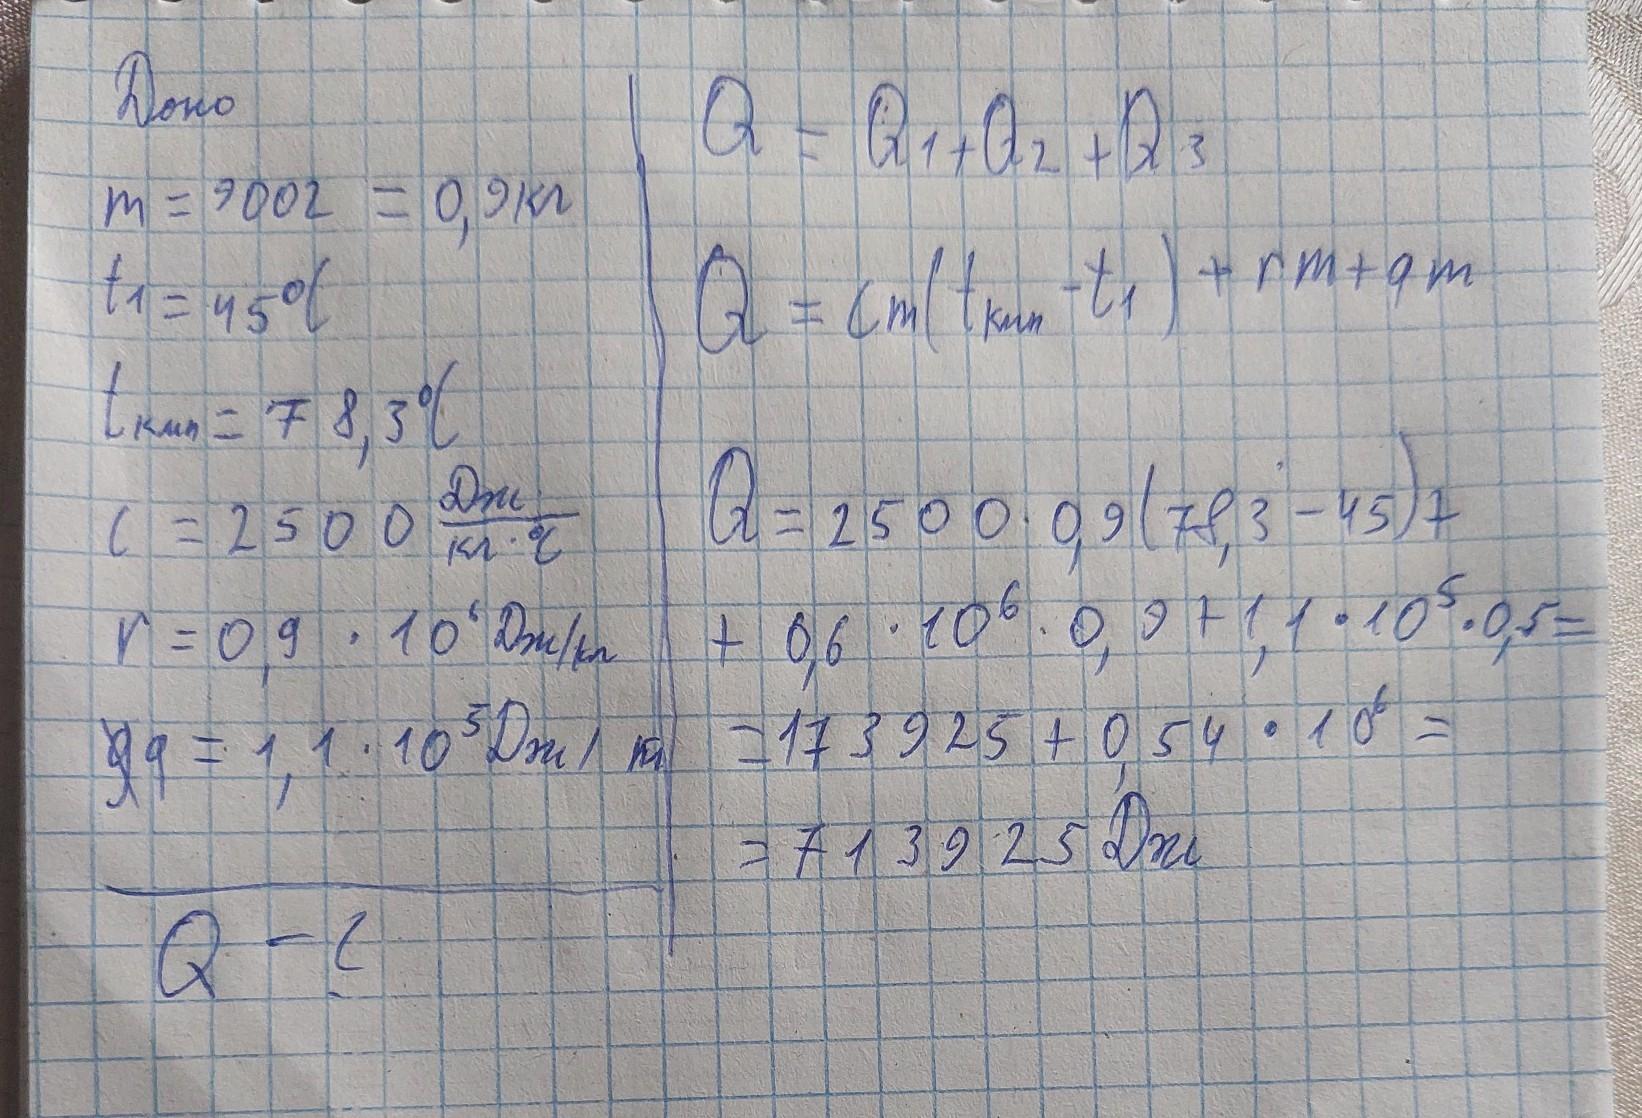 Дано
m = 900г = 0,9кг
t1 = 45°C
tкип = 78,3°C
c = 2500 Дж/кг·°C
r = 0,9 · 10⁶ Дж/кг
q = 1,1 · 10⁵ Дж/кг
Q - ?
Q = Q1 + Q2 + Q3
Q = cm(tкип - t1) + rm + qm
Q = 2500 · 0,9(78,3 - 45) +
+ 0,6 · 10⁶ · 0,9 + 1,1 · 10⁵ · 0,5 =
= 173925 + 0,54 · 10⁶ =
= 713925 Дж